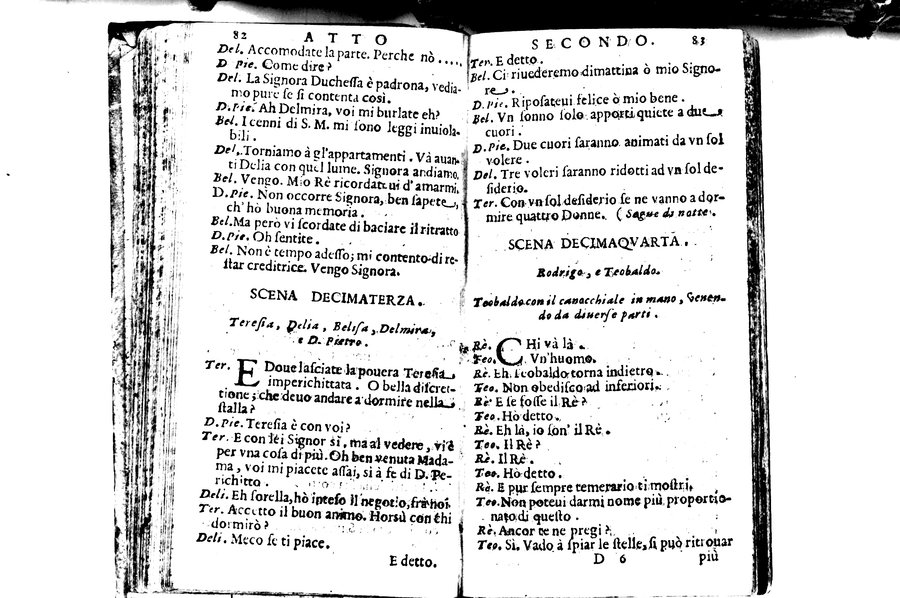 82 ATTO
Del. Accomodate la parte. Perche nò .....
D Pie. Come dire?
Del. La Signora Duchessa è padrona, vedia-
mo pure se si contenta così.
D.Pie. Ah Delmira, voi mi burlate eh?
Bel. I cenni di S. M. mi sono leggi inuiola-
bili.
Del. Torniamo à gl'appartamenti. Và auan-
ti Delia con quel lume. Signora andiamo.
Bel. Vengo. Mio Rè ricordateui d'amarmi.
D.Pie. Non occorre Signora, ben sapete,
ch'hò buona memoria.
Bel. Ma però vi scordate di baciare il ritratto
D.Pie. Oh sentite.
Bel. Non è tempo adesso; mi contento di re-
star creditrice. Vengo Signora.
SCENA DECIMATERZA.
Teresia, Delia, Belisa, Delmira,
e D. Pietro.
Ter. E Doue lasciate la pouera Teresia
imperichittata. O bella discret-
tione; che deuo andare a dormire nella
stalla?
D.Pie. Teresia è con voi?
Ter. E con lei Signor si, ma al vedere, vi è
per vna cosa di più. Oh ben venuta Mada-
ma, voi mi piacete assai, si à fe di D. Pe-
richitto.
Deli. Eh sorella, hò inteso il negotio, frà noi.
Ter. Accetto il buon animo. Horsù con chi
dormirò?
Deli. Meco se ti piace.
E detto.
SECONDO. 83
Ter. E detto.
Bel. Ci riuederemo dimattina ò mio Signo-
re.
D.Pie. Riposateui felice ò mio bene.
Bel. Vn sonno solo apporti quiete a due
cuori.
D.Pie. Due cuori saranno animati da vn sol
volere.
Del. Tre voleri saranno ridotti ad vn sol de-
siderio.
Ter. Con vn sol desiderio se ne vanno a dor-
mire quattro Donne. (Segue di notte.
SCENA DECIMAQVARTA.
Rodrigo, e Teobaldo.
Teobaldo con il canocchiale in mano, Venen-
do da diuerse parti.
Rè. CHi và là.
Teo. Vn'huomo.
Rè. Eh Teobaldo torna indietro.
Teo. Non obedisco ad inferiori.
Rè. E se fosse il Rè?
Teo. Hò detto.
Rè. Eh là, io son' il Rè.
Teo. Il Rè?
Rè. Il Rè.
Teo. Hò detto.
Rè. E pur sempre temerario ti mostri.
Teo. Non poteui darmi nome più proportio-
nato di questo.
Rè. Ancor te ne pregi?
Teo. Si. Vado à spiar le stelle, si può ritrouar
D 6 più